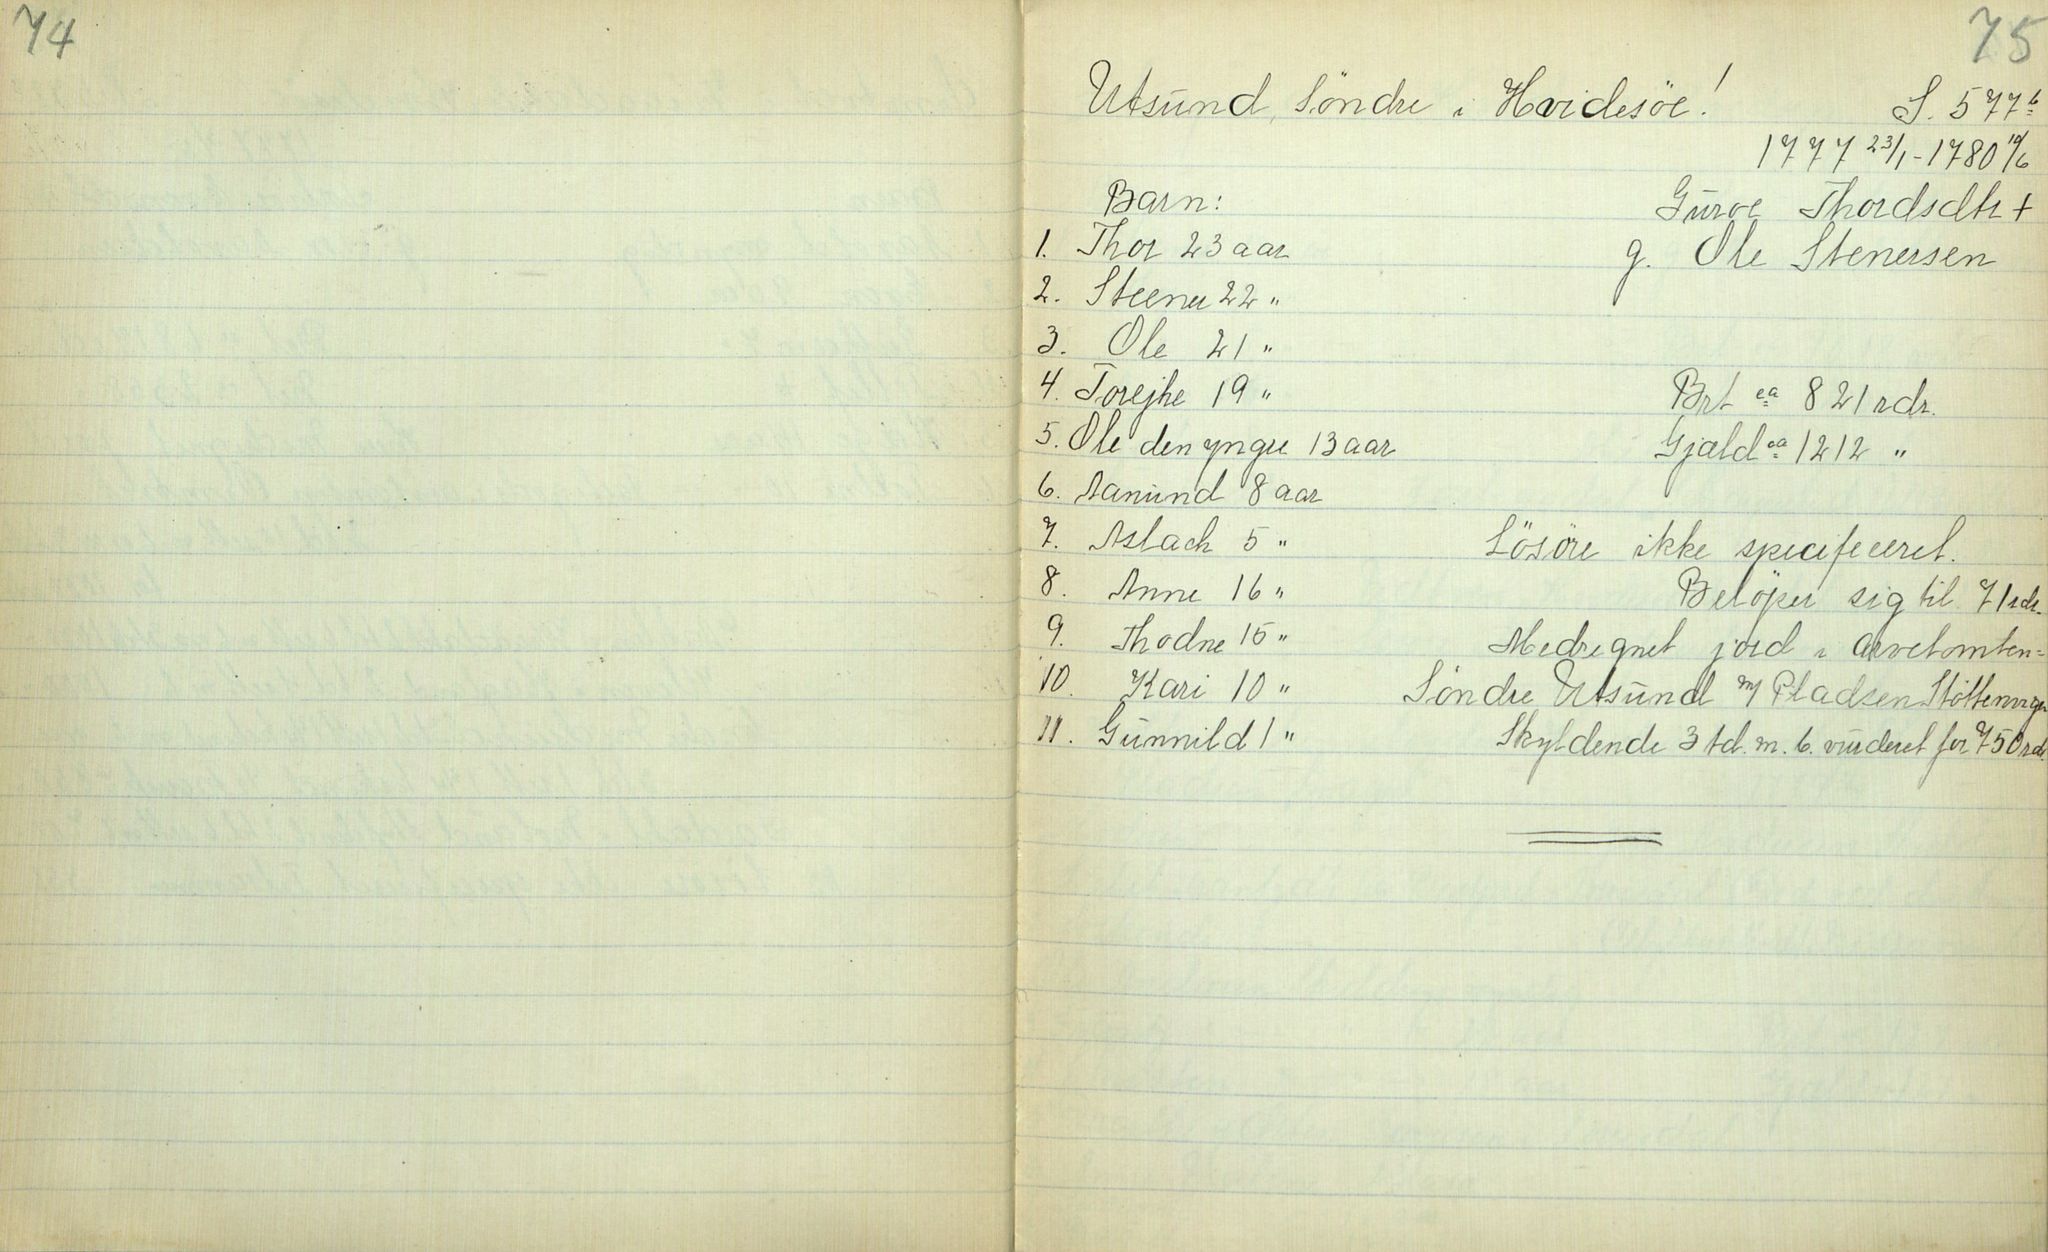 74
75
Utsund, Söndre i Hvidesöe! S. 577 b
1777 23/1 - 1780 10/6
Barn: Gurve Thordsdtr +
1. Thor 23 aar g. Ole Stenersen
2. Steener 22 "
3. Ole 21 "
4. Torejhe 19 " Brt ca 821 rdr.
5. Ole den yngre 13 aar Gjæld ca 1212 "
6. Aanund 8 aar
7. Aslach 5 " Lösöre ikke specifeceret.
8. Anne 16 " Belöper sig til 71 rdr.
9. Thodne 15 " Medregnet jord i arvetomten=
10. Kari 10 " Söndre Utsund m/ Pladsen
11. Gunnild 1 " Skyldende 3 td. m. b. vurderet for 750 rdr.